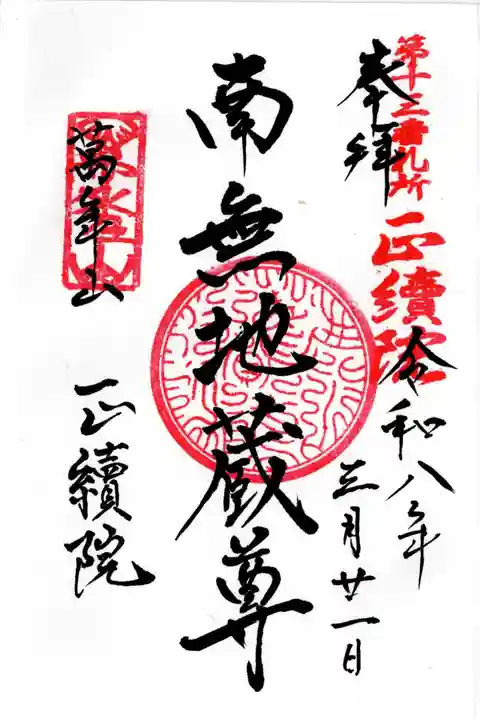 奉拝
第十三番札所 正續院
令和八年
三月廿一日
南無地蔵尊
萬年山
正續院